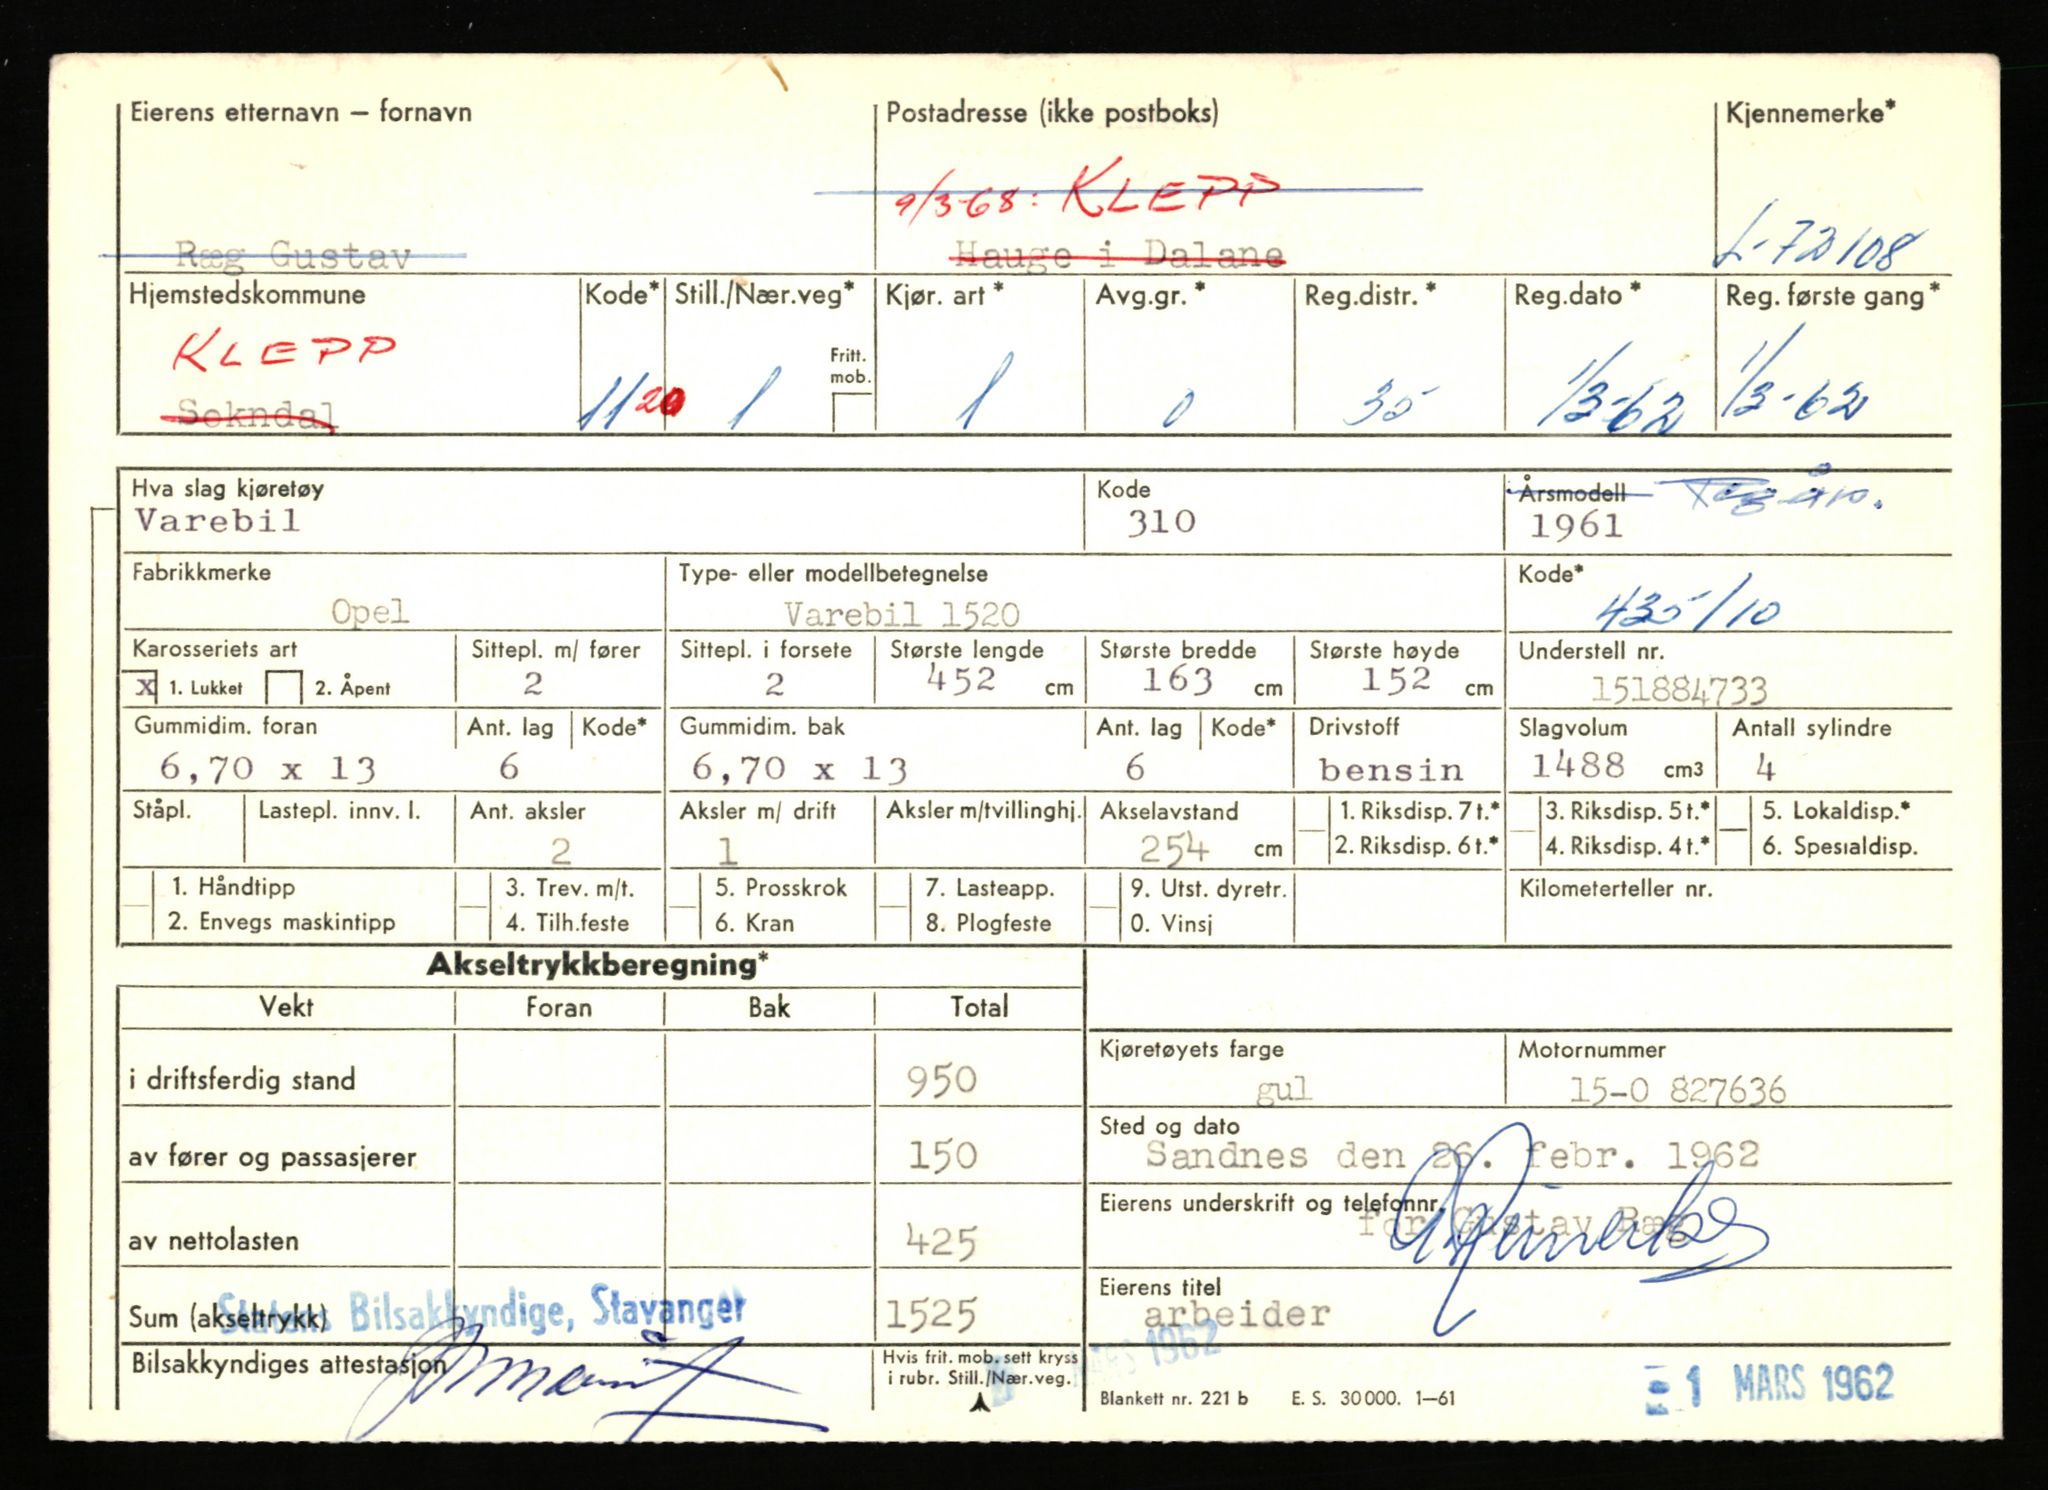 Eierens etternavn — fornavn Postadresse (ikke postboks) Kjennemerke*
9/3-68: KLEPP
Ræg Gustav Hauge i Dalane L-72108
Hjemstedskommune Kode* Still./Nær.veg* Kjør. art* Avg.gr.* Reg.distr.* Reg.dato* Reg. første gang*
KLEPP Fritt. mob.
Sokndal 1120 1 1 0 35 1/3-62 1/3-62
Hva slag kjøretøy Kode Årsmodell Reg.år.
Varebil 310 1961
Fabrikkmerke Type- eller modellbetegnelse Kode*
Opel Varebil 1520 435/10
Karosseriets art Sittepl. m/ fører Sittepl. i forsete Største lengde Største bredde Største høyde Understell nr.
x 1. Lukket 2. Åpent 2 2 452 cm 163 cm 152 cm 151884733
Gummidim. foran Ant. lag Kode* Gummidim. bak Ant. lag Kode* Drivstoff Slagvolum Antall sylindre
6,70 x 13 6 6,70 x 13 6 bensin 1488 cm3 4
Ståpl. Lastepl. innv. l. Ant. aksler Aksler m/ drift Aksler m/tvillinghj. Akselavstand 1. Riksdisp. 7 t.* 3. Riksdisp. 5 t.* 5. Lokaldisp.*
2 1 254 cm 2. Riksdisp. 6 t.* 4. Riksdisp. 4 t.* 6. Spesialdisp.
1. Håndtipp 3. Trev. m/t. 5. Prosskrok 7. Lasteapp. 9. Utst. dyretr. Kilometerteller nr.
2. Envegs maskintipp 4. Tilh.feste 6. Kran 8. Plogfeste 0. Vinsj
Akseltrykkberegning*
Vekt Foran Bak Total
i driftsferdig stand 950
av fører og passasjerer 150
av nettolasten 425
Sum (akseltrykk) 1525
Statens Bilsakkyndige, Stavanger
Bilsakkyndiges attestasjon
Hvis frit. mob. sett kryss
i rubr. Still./Nær.veg.
MARS 1962
Kjøretøyets farge Motornummer
gul 15-0 827636
Sted og dato
Sandnes den 26. febr. 1962
Eierens underskrift og telefonnr.
for Gustav Ræg
Eierens titel
arbeider
Blankett nr. 221 b E. S. 30 000. 1—61
1 MARS 1962